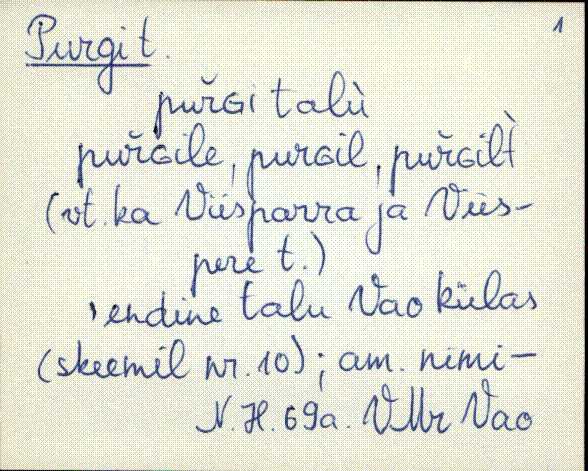 1
Purgi t.
pur̆Gi talù
pur̆Gile, purGil, pur̆Gilt̀
(vt. ka Viisparra ja Viis-
pere t.)
, endine talu Vao külas
(skeemil nr. 10); am. nimi-
N. H. 69a. VMr Vao